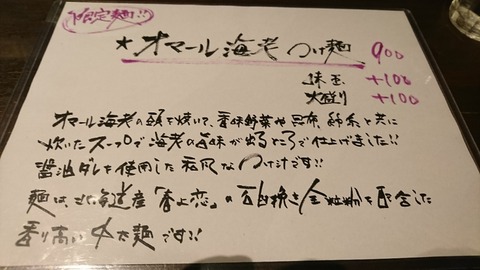 限定麺!!
★オマール海老つけ麺 900
味玉 +100
大盛り +100
オマール海老の頭を焼いて、香味野菜や昆布、節系と共に
炊いたスープで海老の旨味が出るところで仕上げました!!
醤油ダレを使用した和風なつけ汁です!!
麺は、北海道産「春よ恋」の石臼挽き全粒粉を配合した
香り高い中太麺です!!